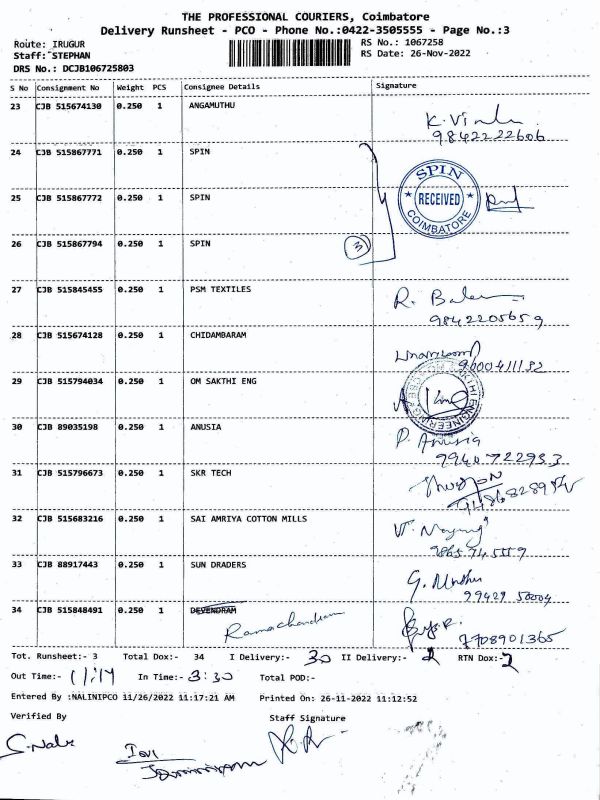 THE PROFESSIONAL COURIERS, Coimbatore
Delivery Runsheet - PCO - Phone No.:0422-3505555 - Page No.:3
Route: IRUGUR
RS No.: 1067258
Staff: STEPHAN
RS Date: 26-Nov-2022
DRS No.: DCJB106725803
S No Consignment No Weight PCS Consignee Details Signature
23 CJB 515674130 0.250 1 ANGAMUTHU
9842222606
24 CJB 515867771 0.250 1 SPIN
SPIN
RECEIVED
COIMBATORE
25 CJB 515867772 0.250 1 SPIN
26 CJB 515867794 0.250 1 SPIN
3
27 CJB 515845455 0.250 1 PSM TEXTILES
9842205659
28 CJB 515674128 0.250 1 CHIDAMBARAM
9600411132
29 CJB 515794034 0.250 1 OM SAKTHI ENG
30 CJB 89035198 0.250 1 ANUSIA
P. Anusia
9940722933
31 CJB 515796673 0.250 1 SKR TECH
32 CJB 515683216 0.250 1 SAI AMRIYA COTTON MILLS
33 CJB 88917443 0.250 1 SUN DRADERS
99429 50004
34 CJB 515848491 0.250 1 DEVENDRAM
Ramachandran
7708901365
Tot. Runsheet:- 3 Total Dox:- 34 I Delivery:- 30 II Delivery:- 2 RTN Dox:- 2
Out Time:- 11:17 In Time:- 3:30 Total POD:-
Entered By :NALINIPCO 11/26/2022 11:17:21 AM Printed On: 26-11-2022 11:12:52
Verified By Staff Signature